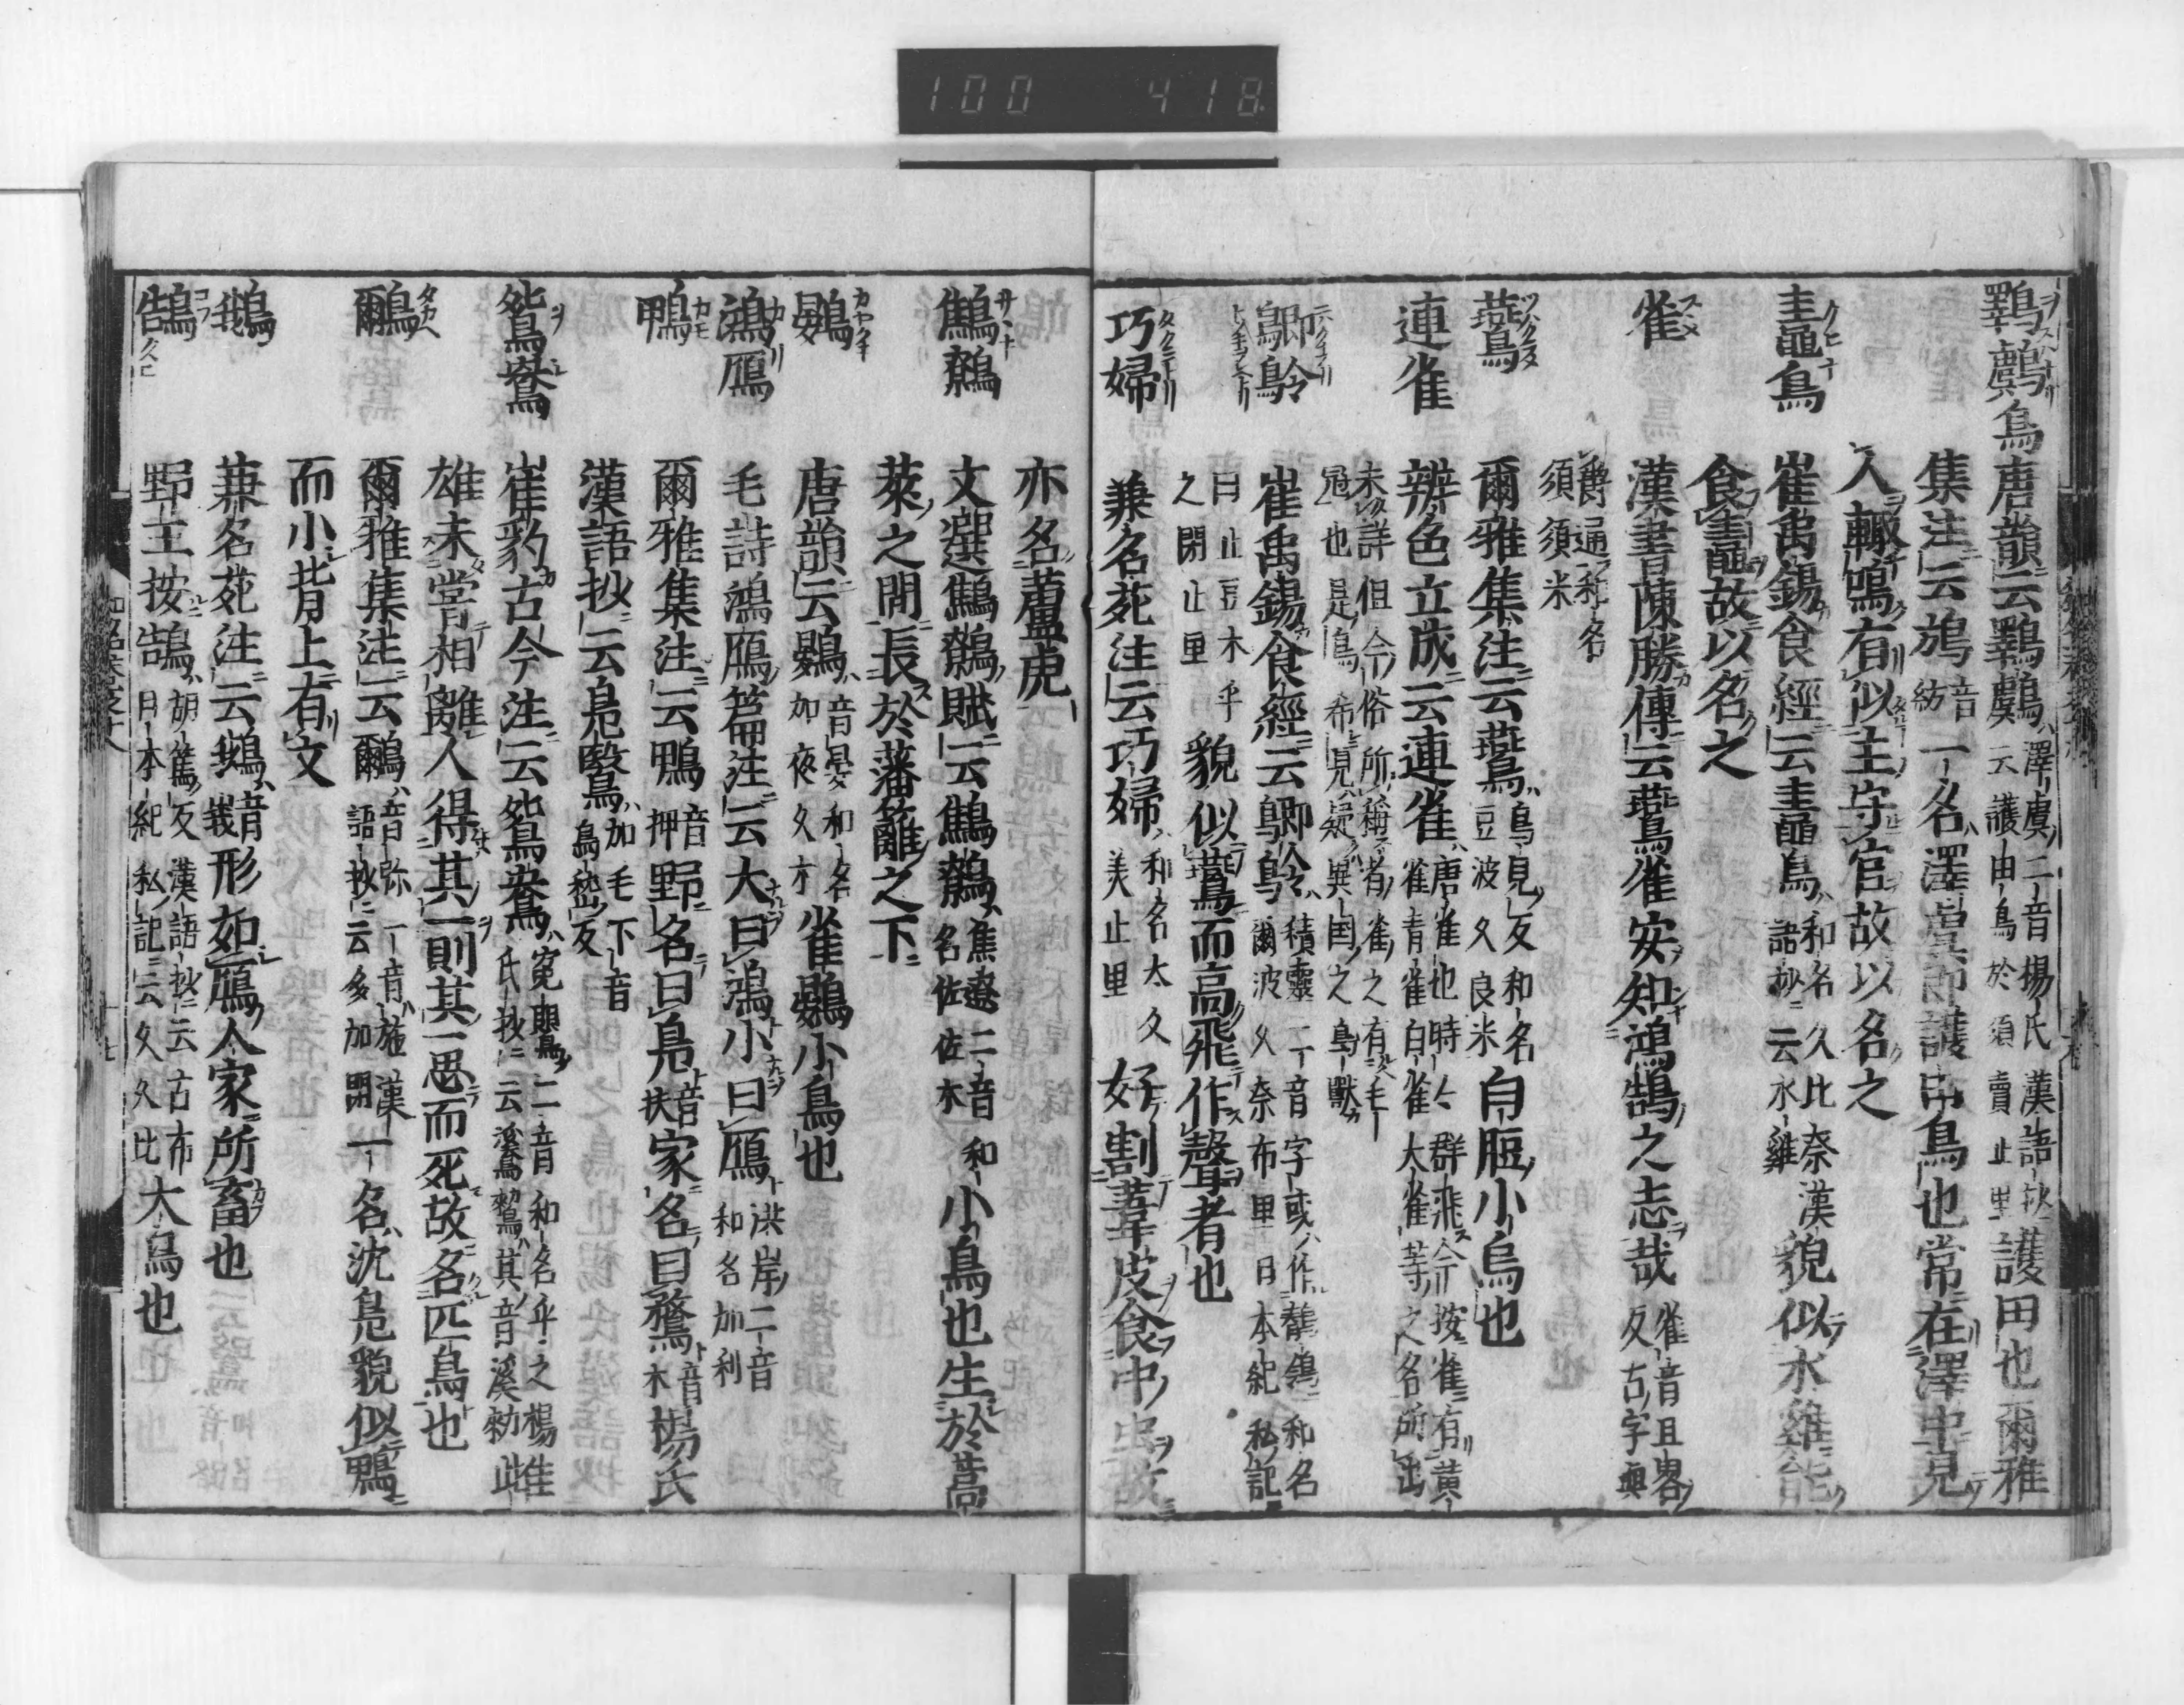 100 418
鸅鸆鳥 唐韻云鸅鸆 澤虞二音楊氏漢語抄云護田鳥於須賣止里 護田也爾雅
集注云鴋 音紡 一名澤虞即護田鳥也常在澤中見
人輙鳴有似主守官故以名之
䵷鳥 崔禹錫食經云䵷鳥 和名久比奈漢語抄云水雞 貌似水雞能
食䵷故以名之
雀 漢書陳勝傳云鷰雀安知鴻鵠之志哉 雀音且畧反古字與
爵通和名須須米
鷰 爾雅集注云鷰 烏見反和名豆波久良米 白脰小烏也
連雀 辨色立成云連雀 唐雀也時々群飛今按雀有黄雀青雀白雀大雀等之名所出
未詳但今俗所稱者雀之有毛冠也是鳥希見疑異国之鳥獸
鶺鴒 崔禹錫食經云鶺鴒 積靈二音字或作鶺鴒和名爾波久奈布里日本紀私記
曰止豆木乎之閇止里 貌似鷰而高飛作聲者也
巧婦 兼名苑注云巧婦 和名太久美止里 好割葦皮食中虫故
亦名蘆虎
鷦鷯 文選鷦鷯賦云鷦鷯 焦遼二音和名佐佐木 小鳥也生於蒿
萊之間長於藩籬之下
鷃 唐韻云鷃 音晏和名加夜久木 雀鷃小鳥也
鴻鴈 毛詩鴻鴈篇注云大曰鴻小曰鴈 洪岸二音和名加利
鴨 爾雅集注云鴨 音押 野名曰鳧 音扶 家名曰鶩 音木 楊氏
漢語抄云鳧鷖 加毛下音烏嵆反
鴛鴦 崔豹古今注云鴛鴦 二音和名乎之楊氏抄云溪鳥其音溪勑 雌
雄未甞相離人得其一則其一思而死故名匹鳥也
鸍 爾雅集注云鸍 音弥一音施漢語抄云多加閇 一名沈鳧貌似鴨
而小背上有文
鵝 兼名苑注云鵝 音義 形如鴈人家所畜也
鵠 野王按鵠 胡篤反漢語抄云古布日本紀私記云久久比 大鳥也